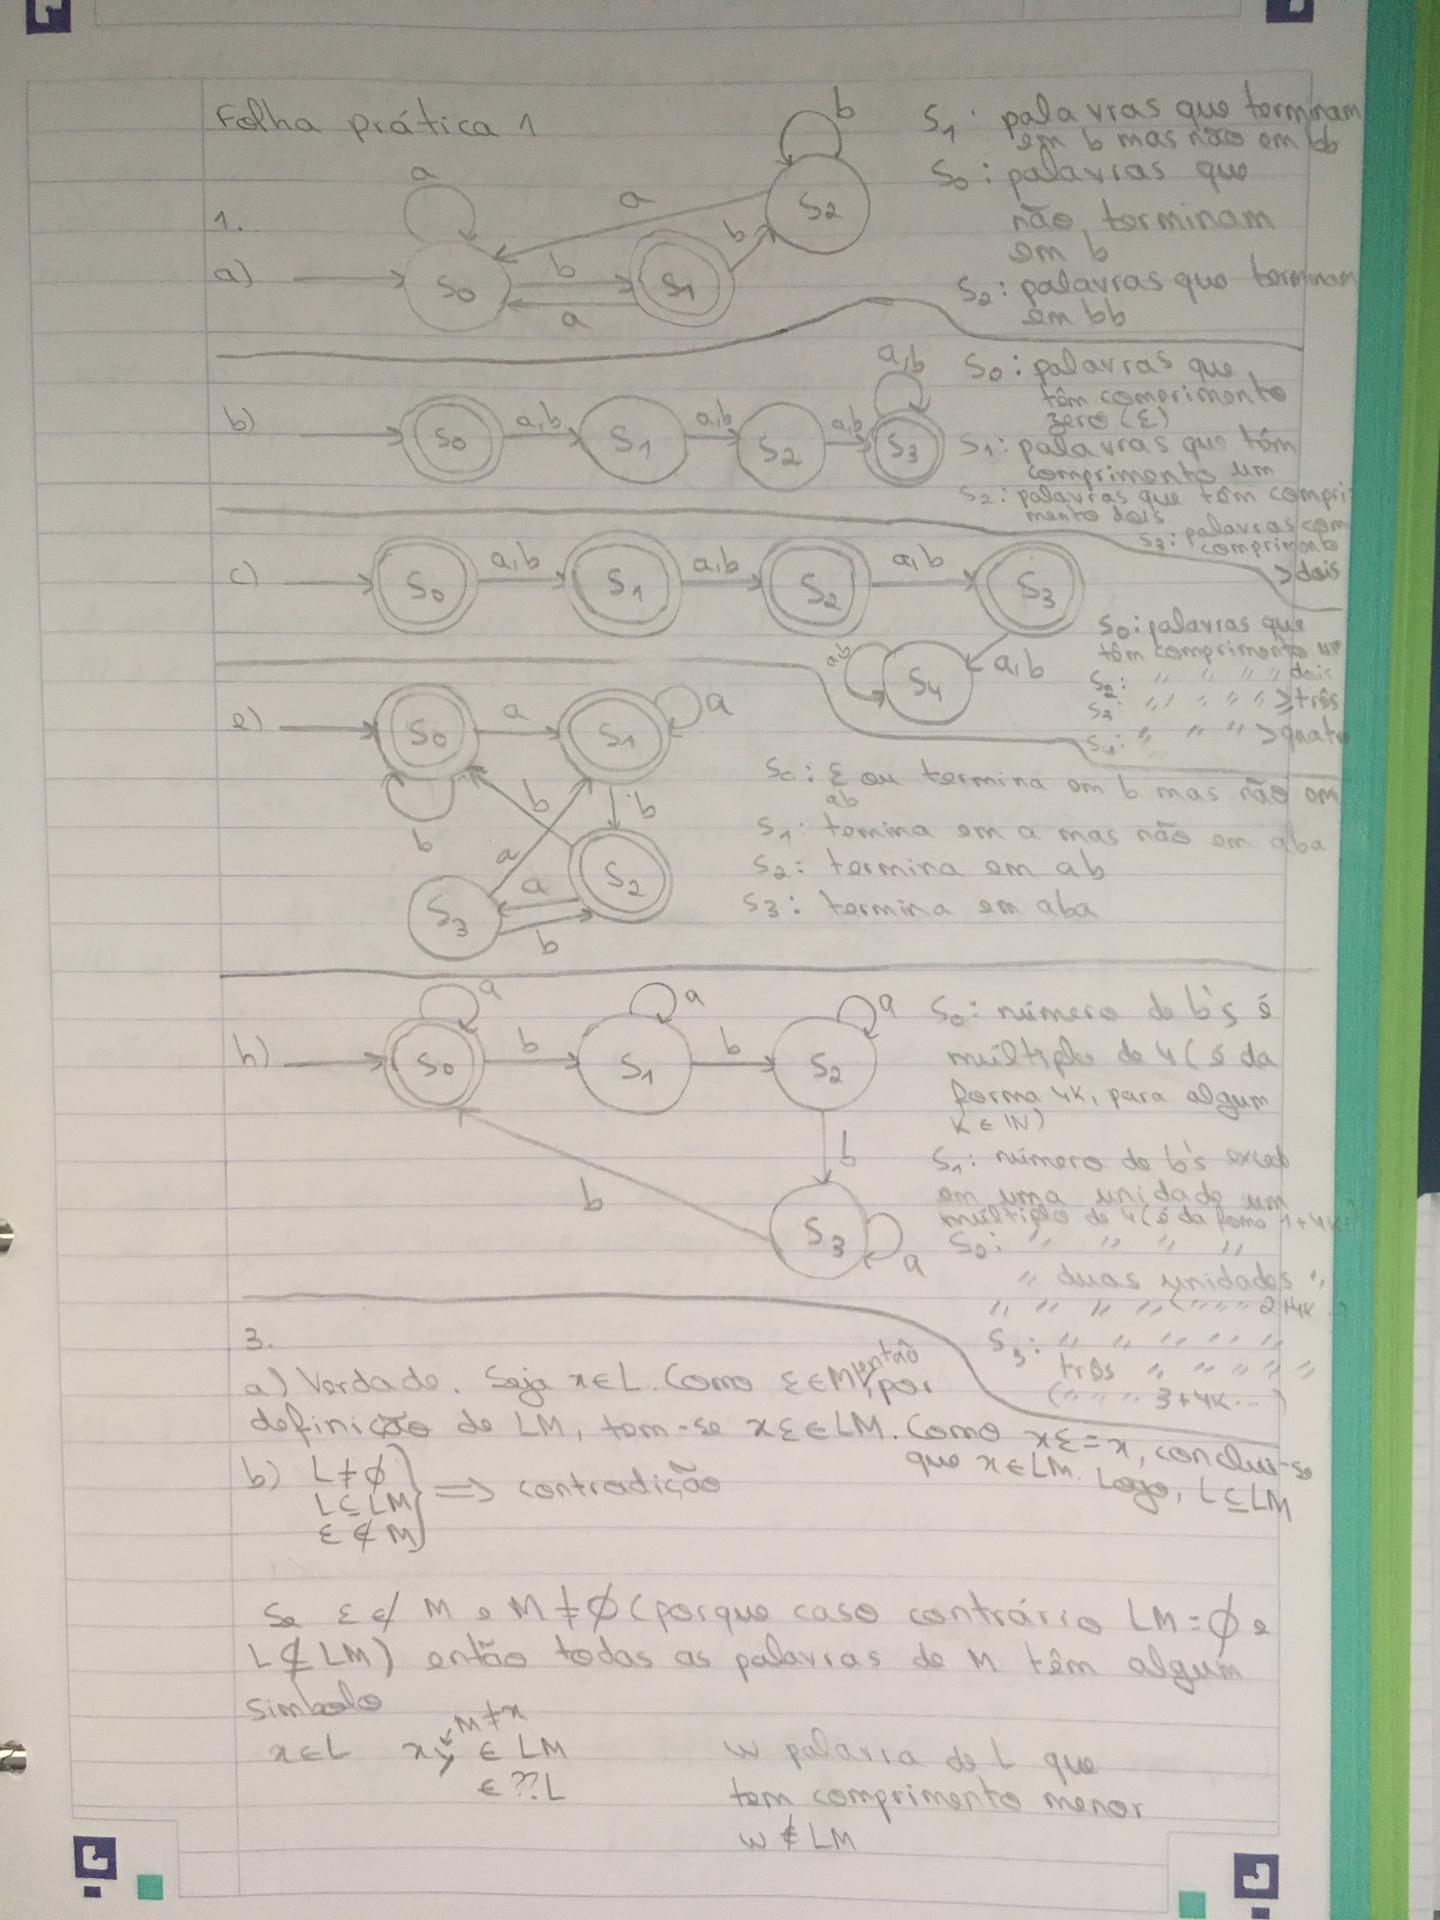 Folha prática 1
1.
a)
a
b
a
b
b
a
S0
S1
S2
S1: palavras que terminam
em b mas não em bb
S0: palavras que
não terminam
em b
S2: palavras que terminam
em bb
b)
S0
a,b
S1
a,b
S2
a,b
S3
a,b
S0: palavras que
têm comprimento
zero (ε)
S1: palavras que têm
comprimento um
S2: palavras que têm compri
mento dois
S3: palavras com
comprimento
>dois
c)
S0
a,b
S1
a,b
S2
a,b
S3
a,b
S4
a,b
S0: palavras que
têm comprimento
S2: " " " " dois
S3: " " " " ≥três
S4: " " " >quatro
e)
S0
a
S1
a
b
b
b
a
S2
a
b
S3
S0: ε ou termina em b mas não em
ab
S1: temina em a mas não em aba
S2: termina em ab
S3: termina em aba
h)
a
S0
b
a
S1
b
a
S2
b
b
S3
a
S0: número de b's é
múltiplo de 4 (é da
forma 4K, para algum
K ∈ IN)
S1: número de b's exced
em uma unidade um
múltiplo de 4 (é da forma 1+4K
S2: " " " "
" duas unidades "
" " " " (" " " 2+4K
S3: " " " " " "
três " " " " "
(" " " " 3+4K...)
3.
a) Verdade. Seja x∈L. Como ε∈M, então por
definição de LM, tem-se xε∈LM. Como xε=x, conclui-se
que x∈LM. Logo, L⊆LM
b) L≠∅
L⊆LM
ε∉M
=> contradição
Se ε∉M e M≠∅ (porque caso contrário LM=∅ e
L⊈LM) então todas as palavras de M têm algum
simbolo
x∈L xy ∈ LM
∈M ≠x
∈??L
w palavra de L que
tem comprimento menor
w∉LM